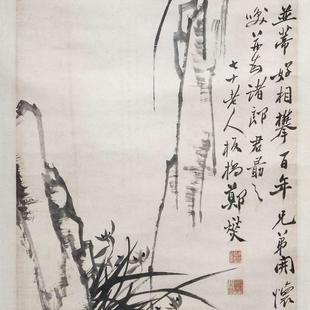 並蒂好相攀百年兄弟開懷
諸郎君之
七十老人板橋鄭燮